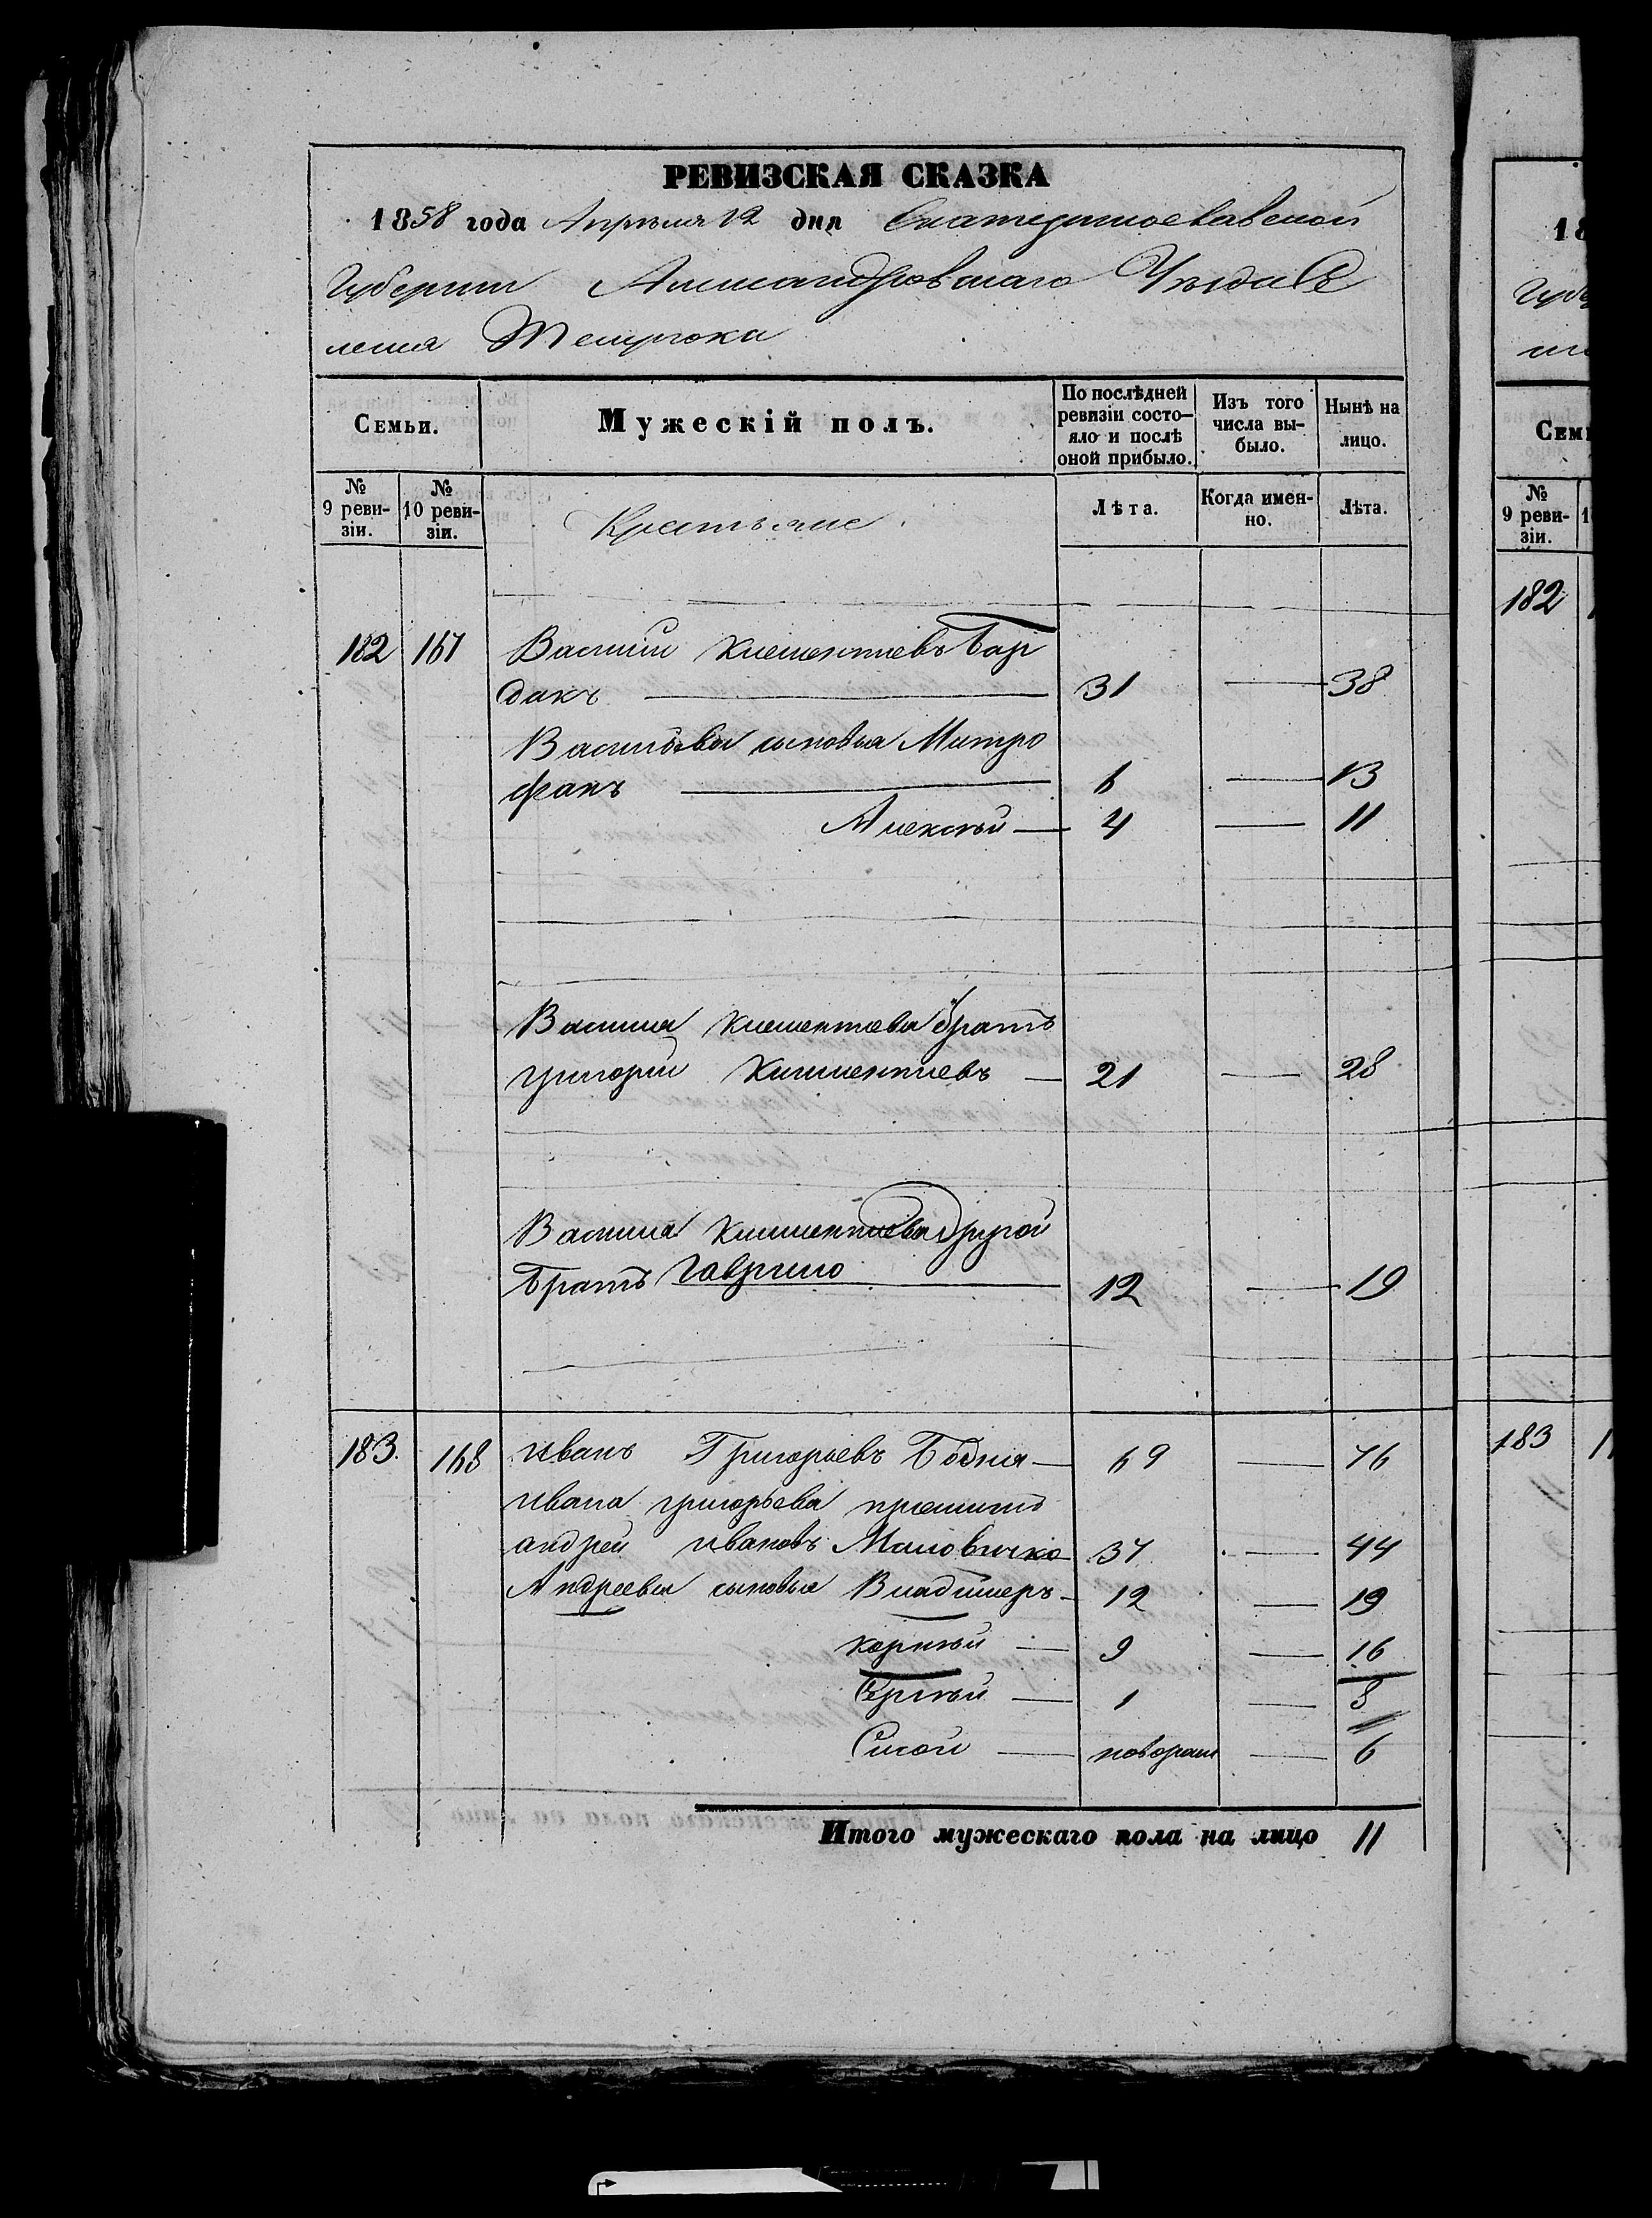 РЕВИЗСКАЯ СКАЗКА
1858 года Апрѣля 12 дня Екатеринославской
Губернiи Александровскаго Уѣзда Се
ленiя Темрюка
Семьи.
Мужескiй полъ.
По послѣдней ревизiи состо-яло и послѣ оной прибыло.
Изъ того числа вы-было.
Нынѣ на лицо.
№ 9 реви-зiи.
№ 10 реви-зiи.
Крестьяне.
Лѣта.
Когда имен-но.
Лѣта.
182 167 Василiй Клементiевъ Бар
дакъ — 31 — 38
Васильевы сыновья Митро
фанъ — 6 — 13
Алексѣй — 4 — 11
Василiя Клементiева братъ
григорiй Климентiевъ — 21 — 28
Василiя Климентiева другой
братъ Гаврило — 12 — 19
183. 168 иванъ Григорьевъ Бодня — 69 — 76
ивана григорьева
андрей ивановъ Маловичко 37 — 44
Андреевы сыновья Владимеръ — 12 — 19
корнѣй — 9 — 16
Сергѣй — 1 — 8
Сисой — новорож — 6
Итого мужескаго пола на лицо 11
18
Губе
Сем
№ 9 реви-зiи.
182
183